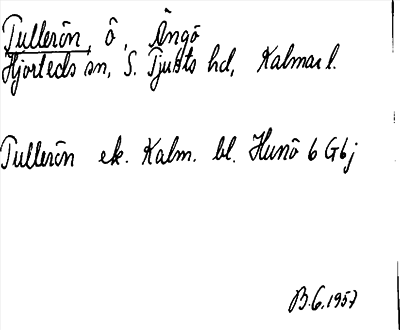 Tullerön, ö, Ängö
Hjorteds sn, S. Tjusts hd, Kalmar l.
Tullerön ek. Kalm. bl. Hunö 6 G6j
B.G.1957